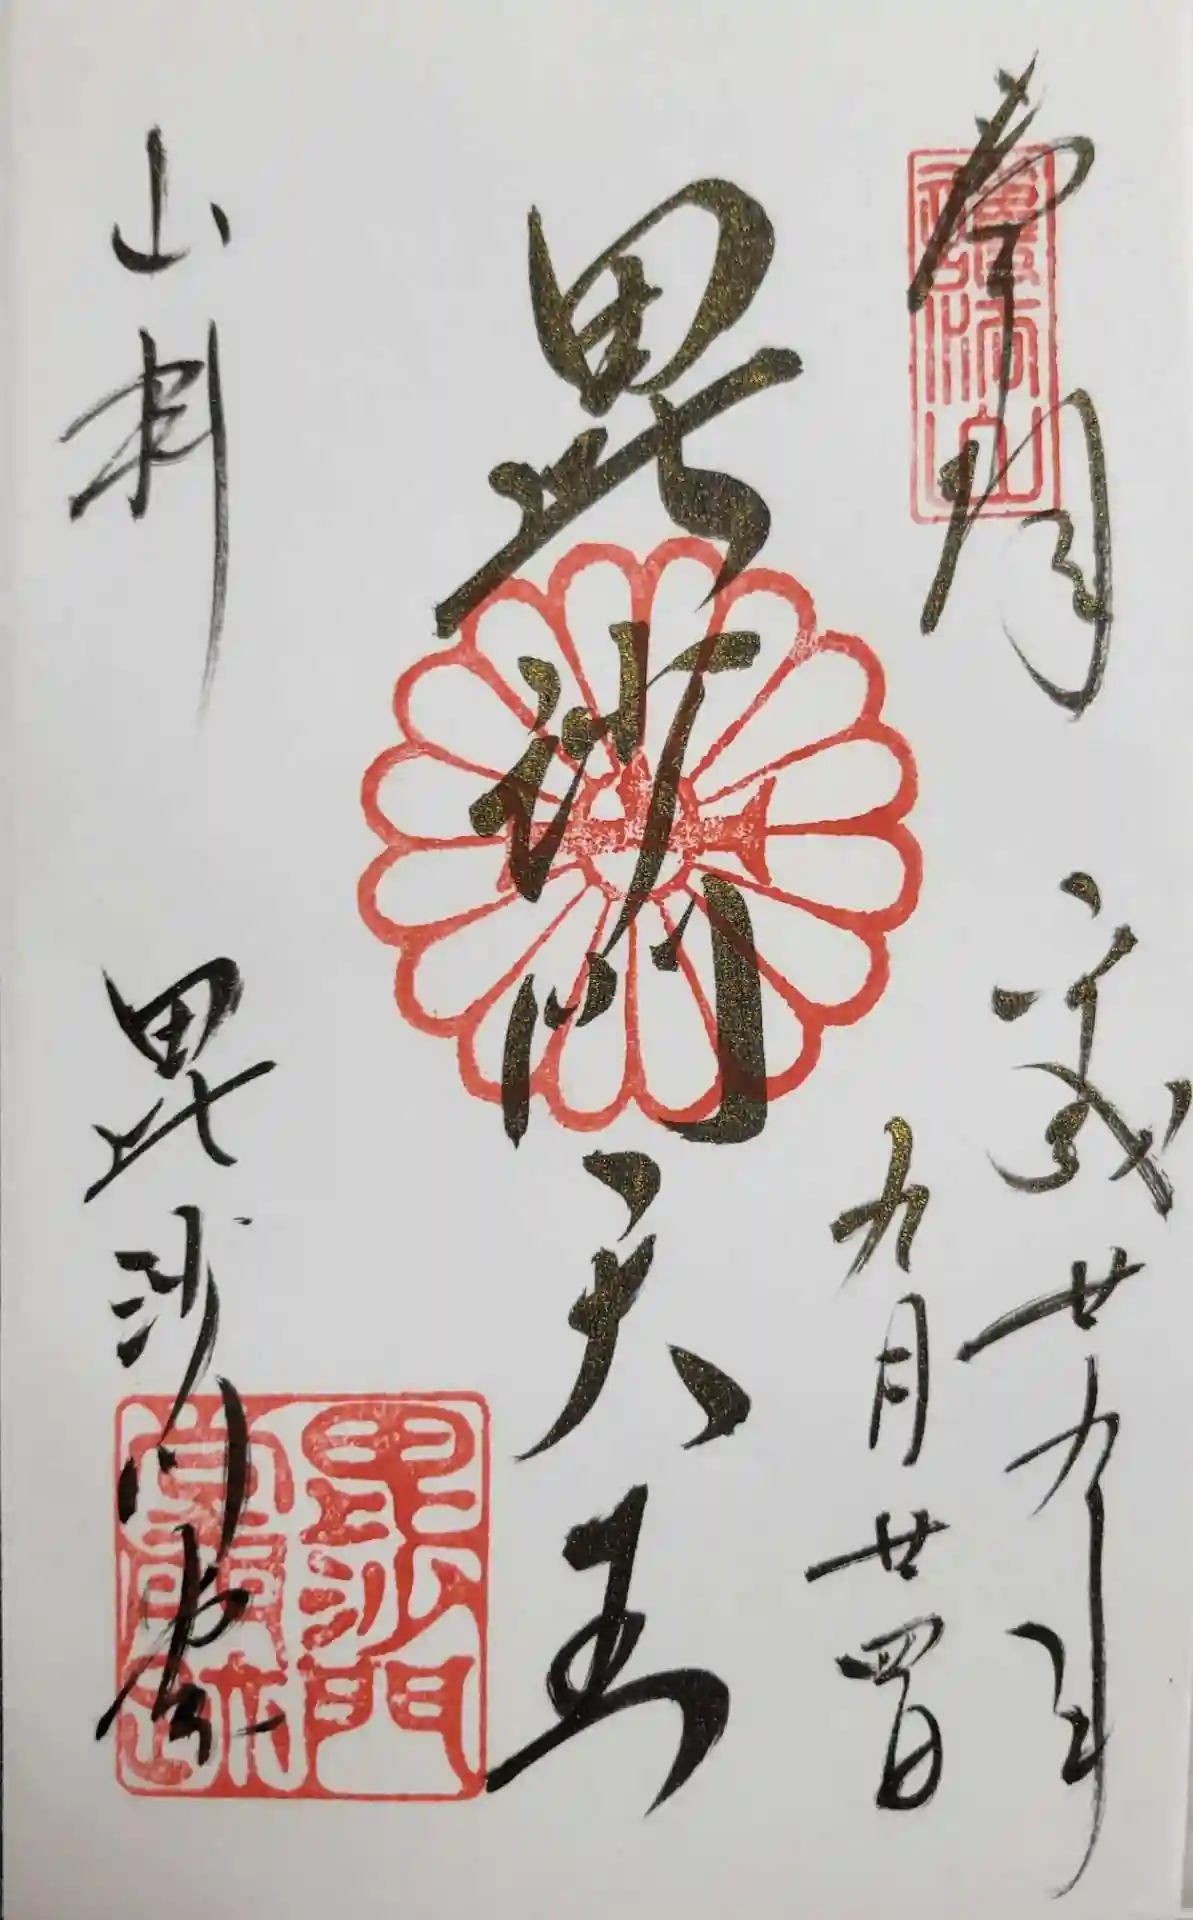 護法山
平成廿九年
九月廿四日
毘沙門天王
山科
毘沙門堂
毘沙門
堂門跡